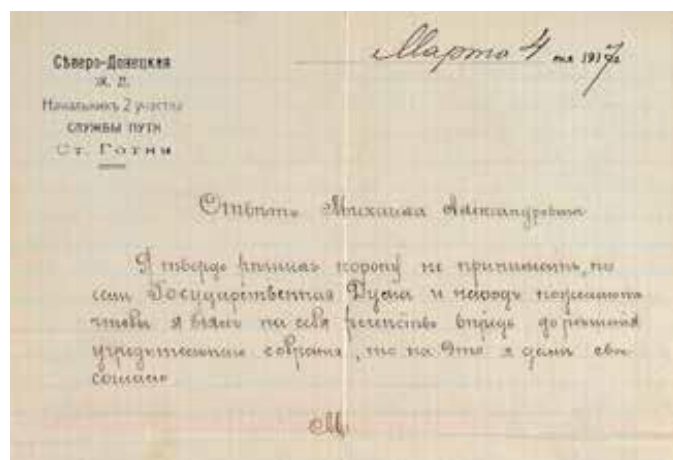 Сѣверо-Донецкая
Ж. Д.
Начальникъ 2 участка
СЛУЖБЫ ПУТИ
Ст. Готня
Марта 4 дня 1917 г.
Отвѣтъ Михаила Александровича
Я твердо рѣшилъ корону не принимать, но
если Государственная Дума и народъ пожелаютъ
чтобы я взялъ на себя регентство впредь до рѣшенія
учредительнаго собранія, то на это я даю свое
согласіе
М.